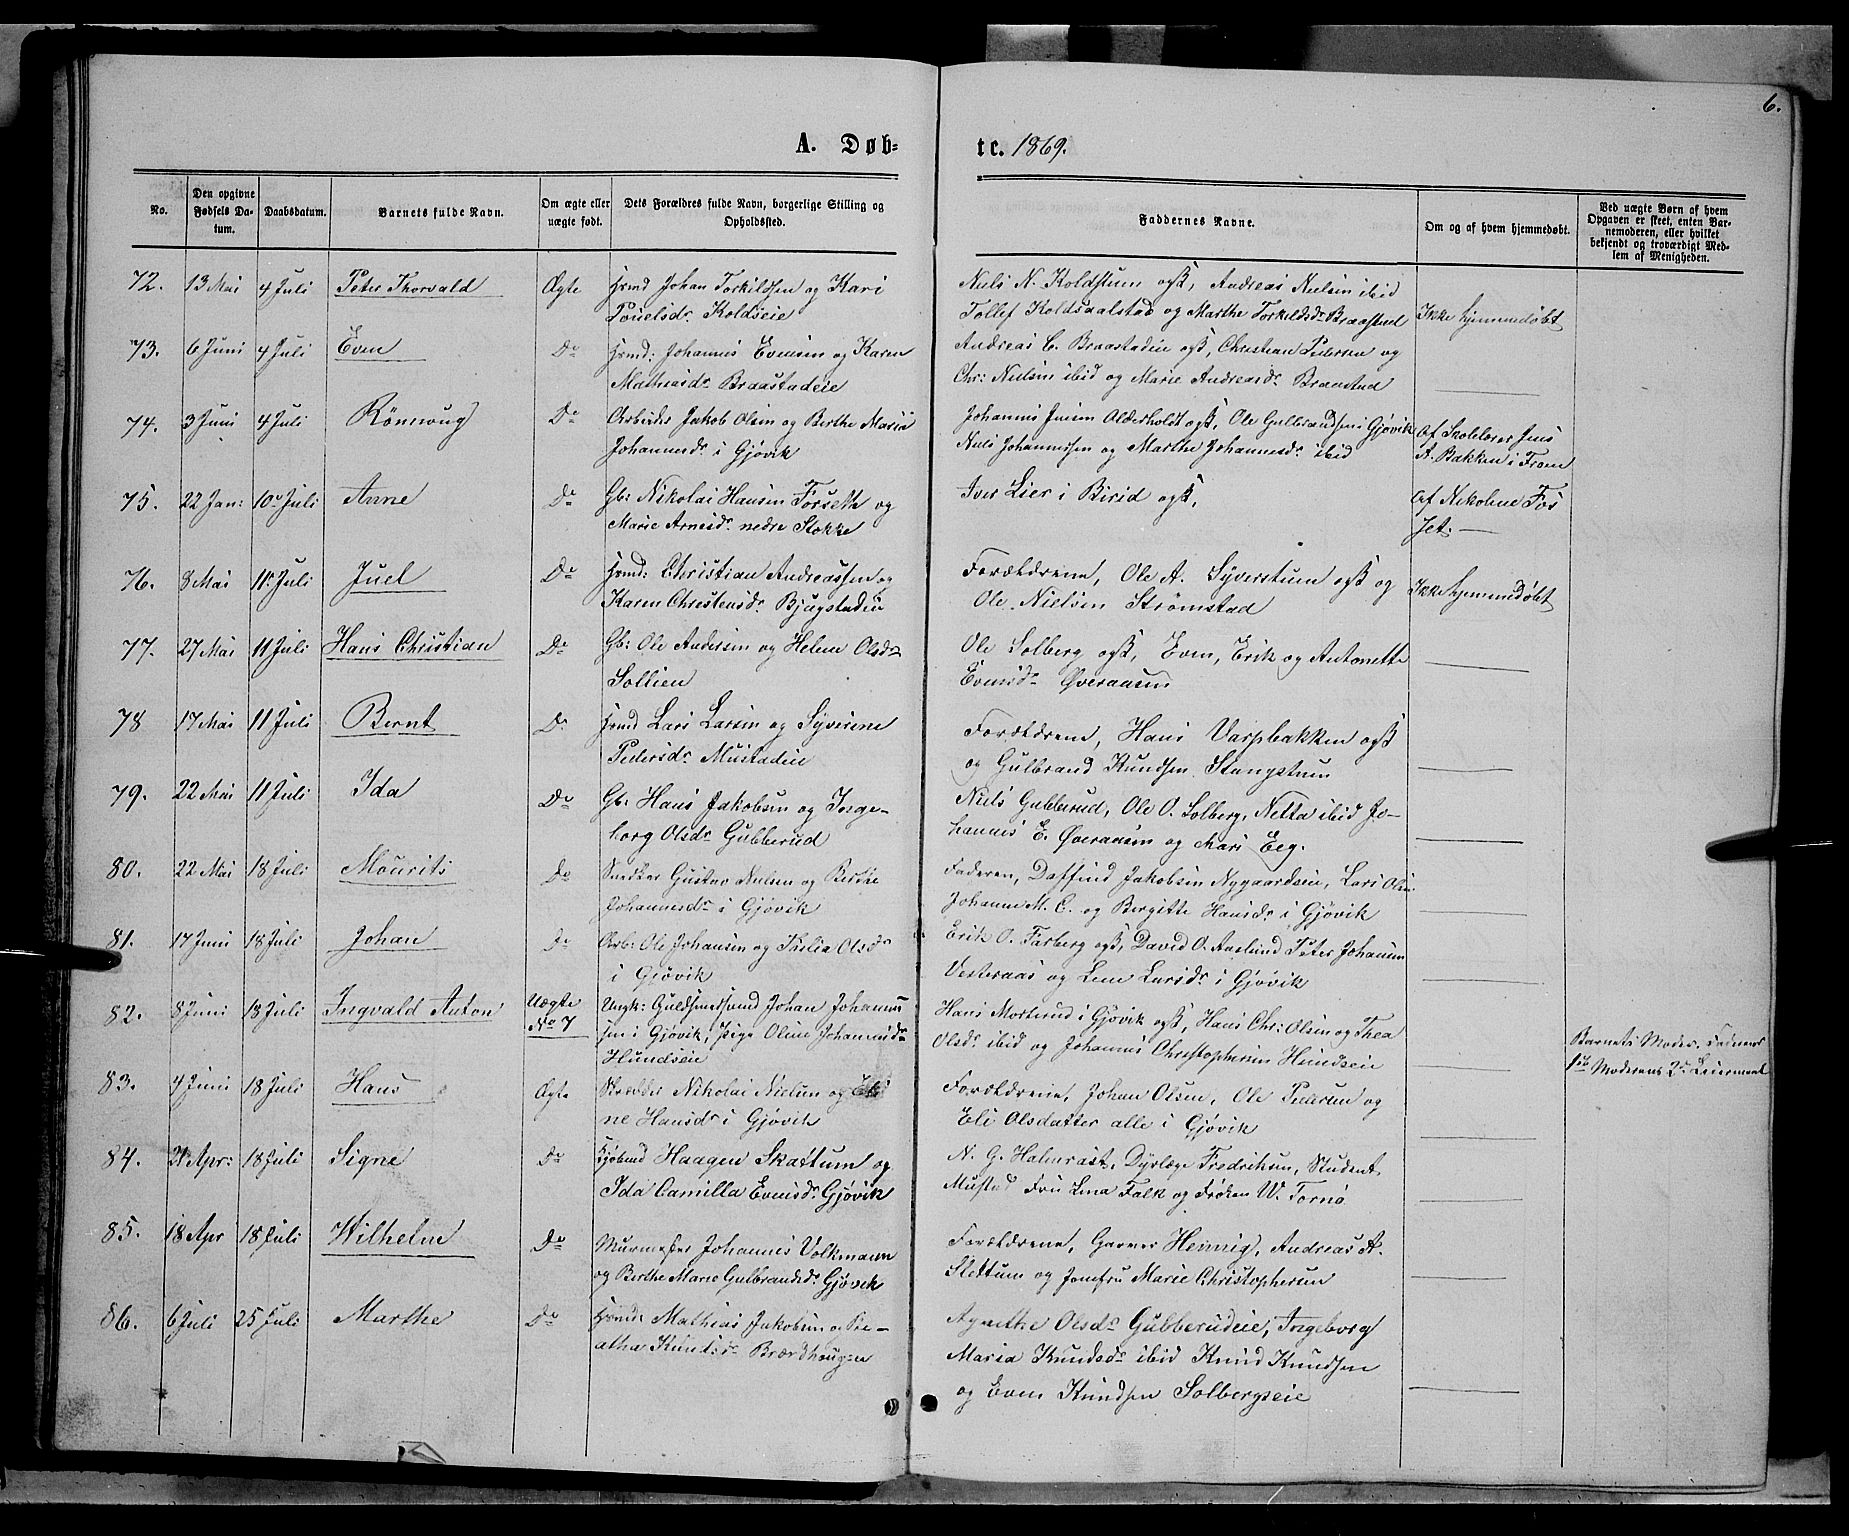 6.
A. Døb= te. 1869.
No.
Den opgivne Fødsels Da-tum.
Daabsdatum.
Barnets fulde Navn.
Om ægte eller uægte født.
Dets Forældres fulde Navn, borgerlige Stilling og Opholdssted.
Faddernes Navne.
Om og af hvem hjemmedøbt.
Ved uægte Børn af hvem Opgaven er skeet, enten Bar-nemoderen, eller hvilket bekjendt og troværdigt Med-lem af Menigheden.
72. 13 Mai 4 Juli Peter Thorvald Ægte Hsmd Johan Torkildsen og Kari
Pouelsdr Koldseie
Niels N. Koldstum ogsk, Andreas Nielsen ibid
Tollef Koldsaalstad og Marthe Torkildsdr Braastad
Ikke hjemmedøbt
73. 6 Juni 4 Juli Even Do Hsmd: Johannes Evensen og Karen
Mathiasdr Braastadeie
Andreas C. Braastadeie ogsk, Christian Pedersen og
Chr: Nielsen ibid og Marie Andreasdr Braastad
74. 3 Juni 4 Juli Rönnoug Do Arbeider Jakob Olsen og Berthe Maria
Johannesdr i Gjøvik
Johannes Jensen Alderholdt ogsk, Ole Gulbrandsen i Gjøvik
Niels Johannessen og Marthe Johannesdr ibid
Af Skolelærer Jens
A. Bakken i From
75. 22 Jan: 10 Juli Anne Do Gb: Nikolai Hansen Forseth og
Marie Arnesdr nedre Stokke
Iver Lier i Birid ogsk,
Af Nikoline Fos
set.
76. 8 Mai 11 Juli Juel Do Hsmd: Christian Andreassen og
Karen Christensdr Bjugstadeie
Forældrene, Ole A. Syverstuen ogsk og
Ole Nielsen Strømstad
Ikke hjemmedøbt
77. 27 Mai 11 Juli Hans Christian Do Gb: Ole Andersen og Helene Olsdr
Sollien
Ole Solberg ogsk, Even, Erik og Antonette
Evensdr Øveraasen
78 17 Mai 11 Juli Bernt Do Hsmd Lars Larsen og Syverine
Pedersdr Mustadeie
Forældrene, Hans Varpbakken ogsk
og Gulbrand Knudsen Stangstuen
79. 22 Mai 11 Juli Ida Do Gb: Hans Jakobsen og Inge-
borg Olsdr Gubberud
Niels Gubberud, Ole O. Solberg, Netta ibid Jo-
hannes E. Øveraasen og Mari Eeg.
80. 22 Mai 18 Juli Mourits Do Snedker Gustav Nielsen og Berthe
Johannesdr i Gjøvik
Faderen, Daffind Jakobsen Nygaardseie, Lars Olsen
Johanne M. C. og Bergitte Hansdr i Gjøvik
81. 17 Juni 18 Juli Johan Do Arb: Ole Johansen og Thelia Olsdr
i Gjøvik
Erik O. Farberg ogsk, David O. Aaslund Peter Johansen
Vesteraas og Lene Larsdr i Gjøvik
82. 8 Juni 18 Juli Ingvald Anton Uægte
No 7
Ungk: Guldsmedsvend Johan Johannes
sen i Gjøvik, Pige Oline Johannesdr
Hundseie
Hans Morterud i Gjøvik ogsk, Hans Chr: Olsen og Thea
Olsdr ibid og Johannes Christophersen Hundseie
Barnets Moder. Faderens
1ste Moderens 2det Leiermaal
83. 4 Juni 18 Juli Hans Ægte Skrædder Nikolai Nielsen og
ne Hansdr i Gjøvik
Forældrene, Johan Olsen, Ole Pedersen og
Eli Olsdatter alle i Gjøvik
84. 21 Apr: 18 Juli Signe Do Kjøbmd Haagen Skattum og
Ida Camilla Evensdr Gjøvik
N. G. Halmrast, Dyrlæge Fredriksen, Student
Mustad Fru Lina Falk og Frøken W. Tornö
85. 18 Apr 18 Juli Wilhelm Do Murmester Johannes Volkmann
og Berthe Marie Gulbrandsdr Gjøvik
Forældrene, Garver Hennig, Andreas A.
Slettum og Jomfru Marie Christophersen
86. 6 Juli 25 Juli Marthe Do Hsmd: Mathias Jakobsen og Pe-
atha Knutsdr Brædhougen
Agnethe Olsdr Gubberudeie, Ingeborg
Maria Knudsdr ibid Knud Knudsen
og Even Knudsen Solbergseie